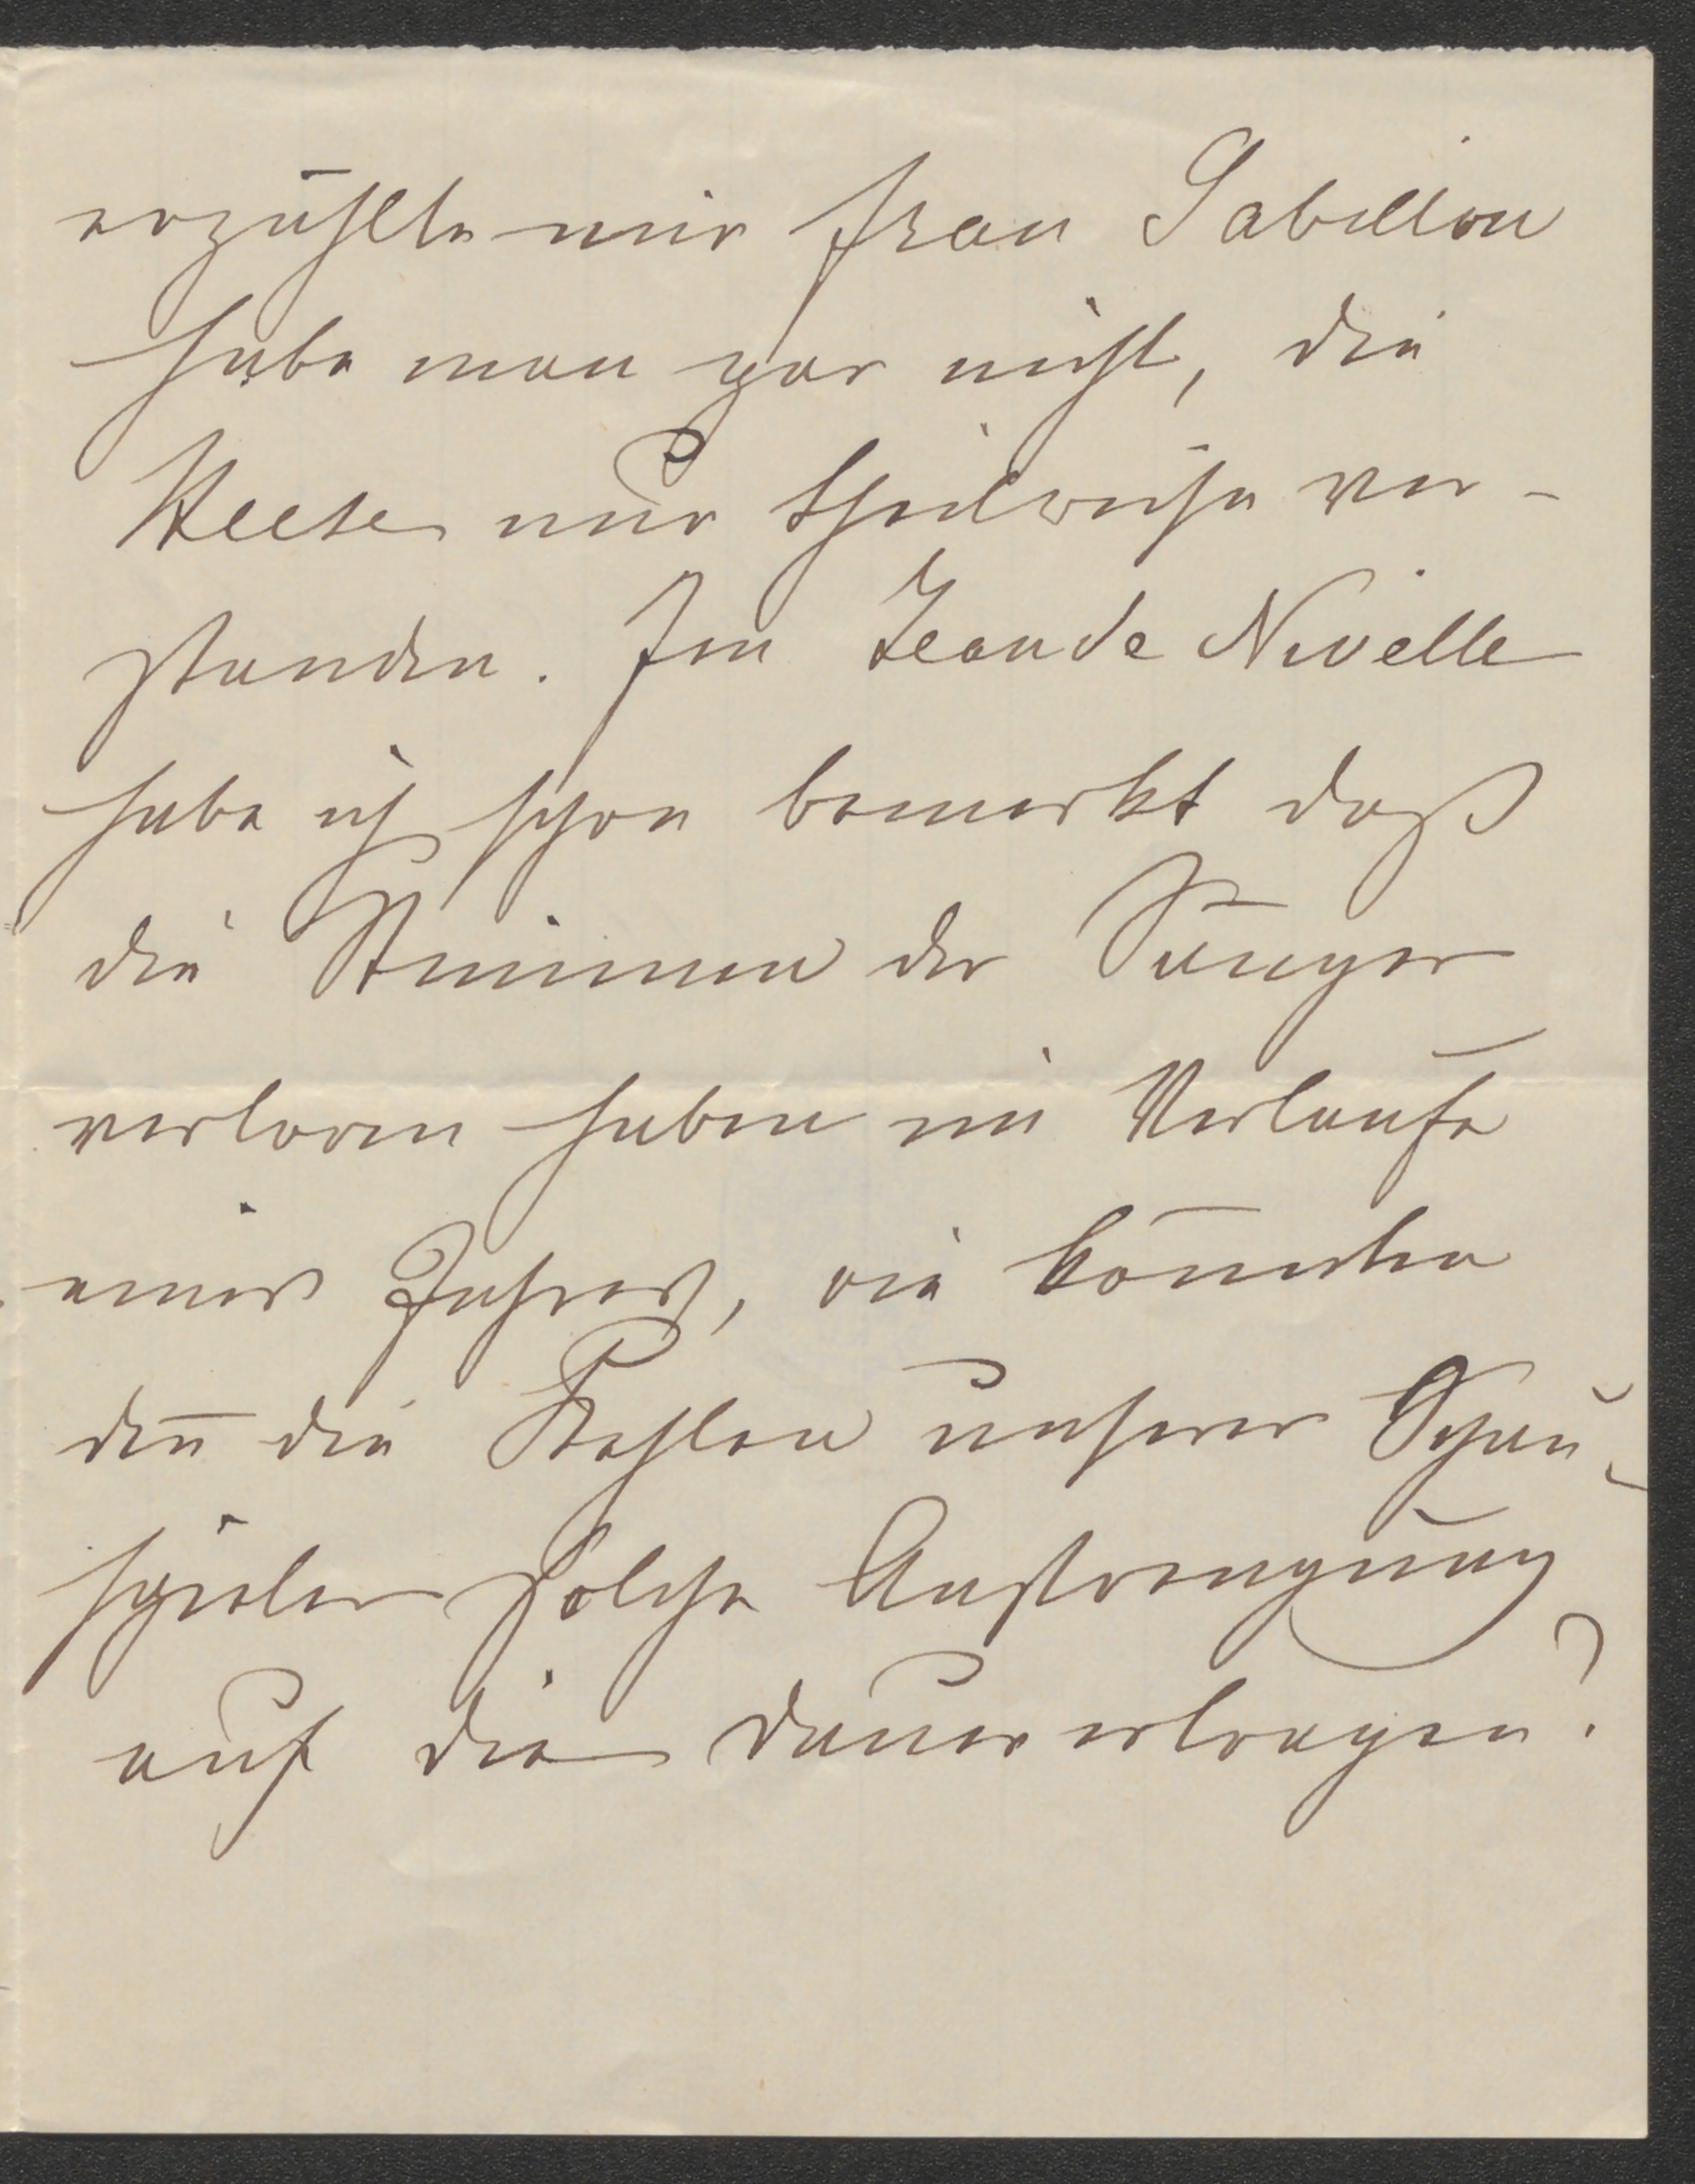 erzählte mir Frau Gabillon
habe man gar nicht, die
Weete nur theilweise ver-
standen. Im Jean de Nivelle
habe ich schon bemerkt daß
die Stimmen der Sänger
verloren haben im Verlaufe
eines Jahres, wie könnten
deñ die Kehlen unserer Schau-
spieler solche Anstrengung
auf die Dauer ertragen?